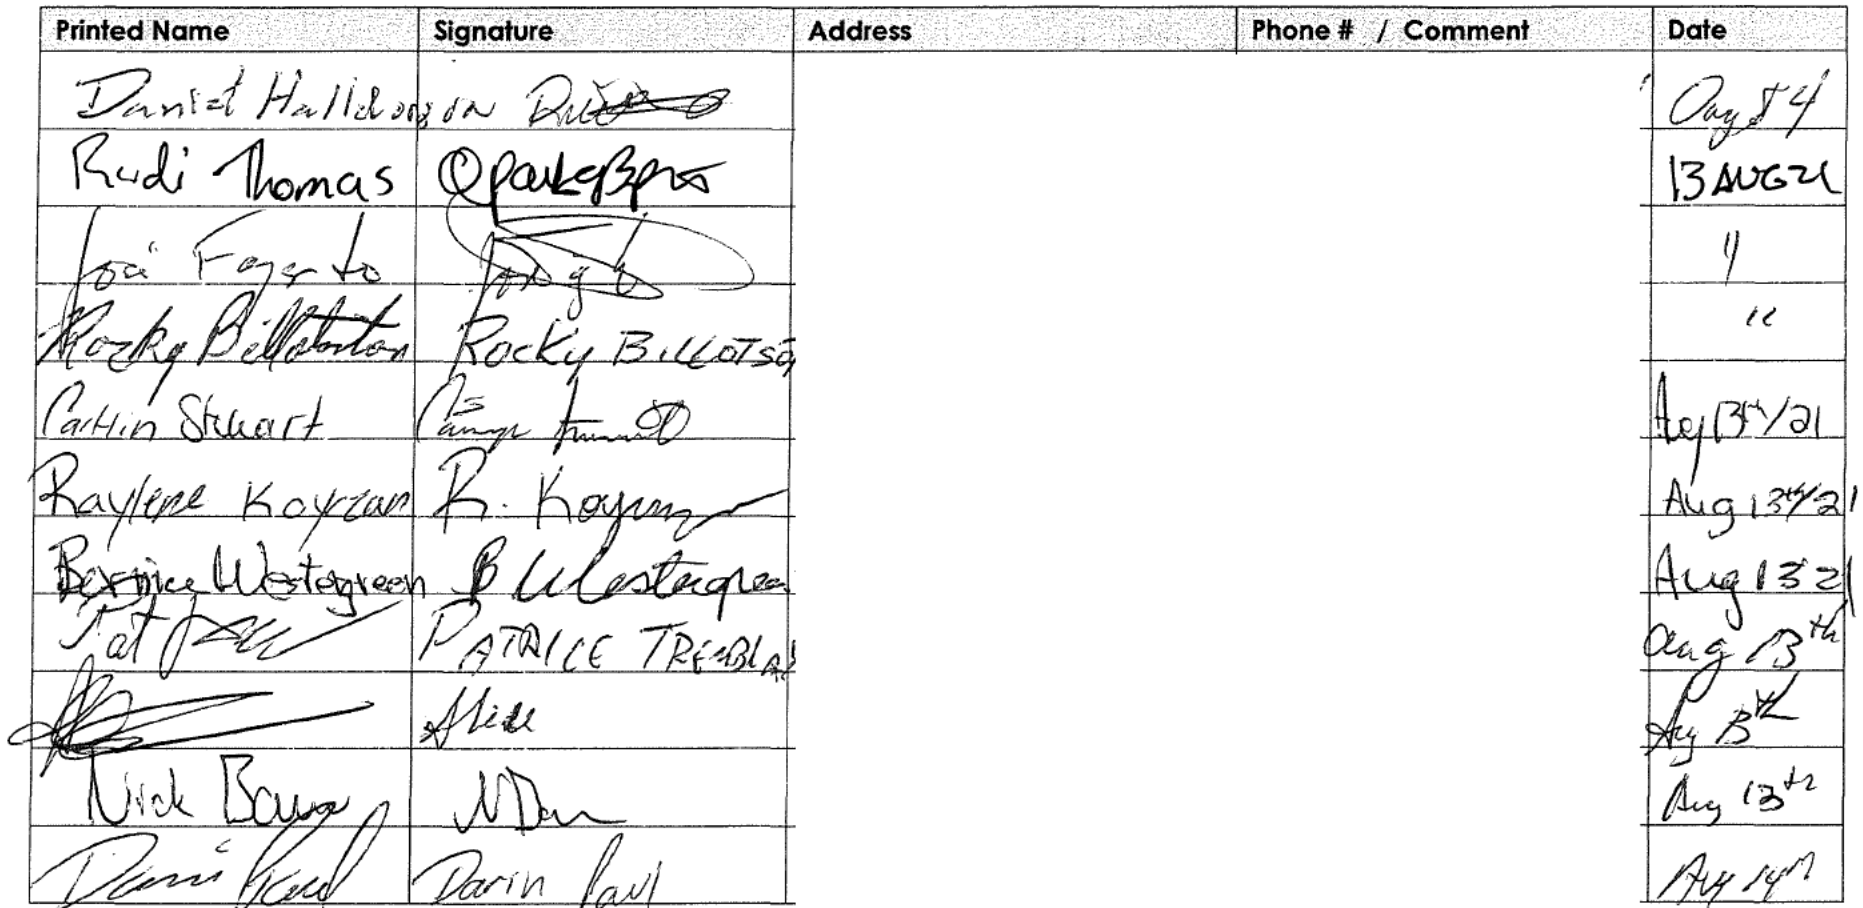 Printed Name Signature Address Phone # / Comment Date
Daniel Halldorson
Rudi Thomas 13 AUG 21
"
Rocky Billotson ROCKY BILLOTSO "
Caitlin Stewart Aug 13th/21
Raylene Koyczan R. Koyczan Aug 13th/21
Bernice Westergreen B Westergreen Aug 13 21
Pat PATRICE TREMBLAY Aug 13th
Alice Aug 13th
Nick Aug 13th
Darin Paul Darin Paul Aug 14th